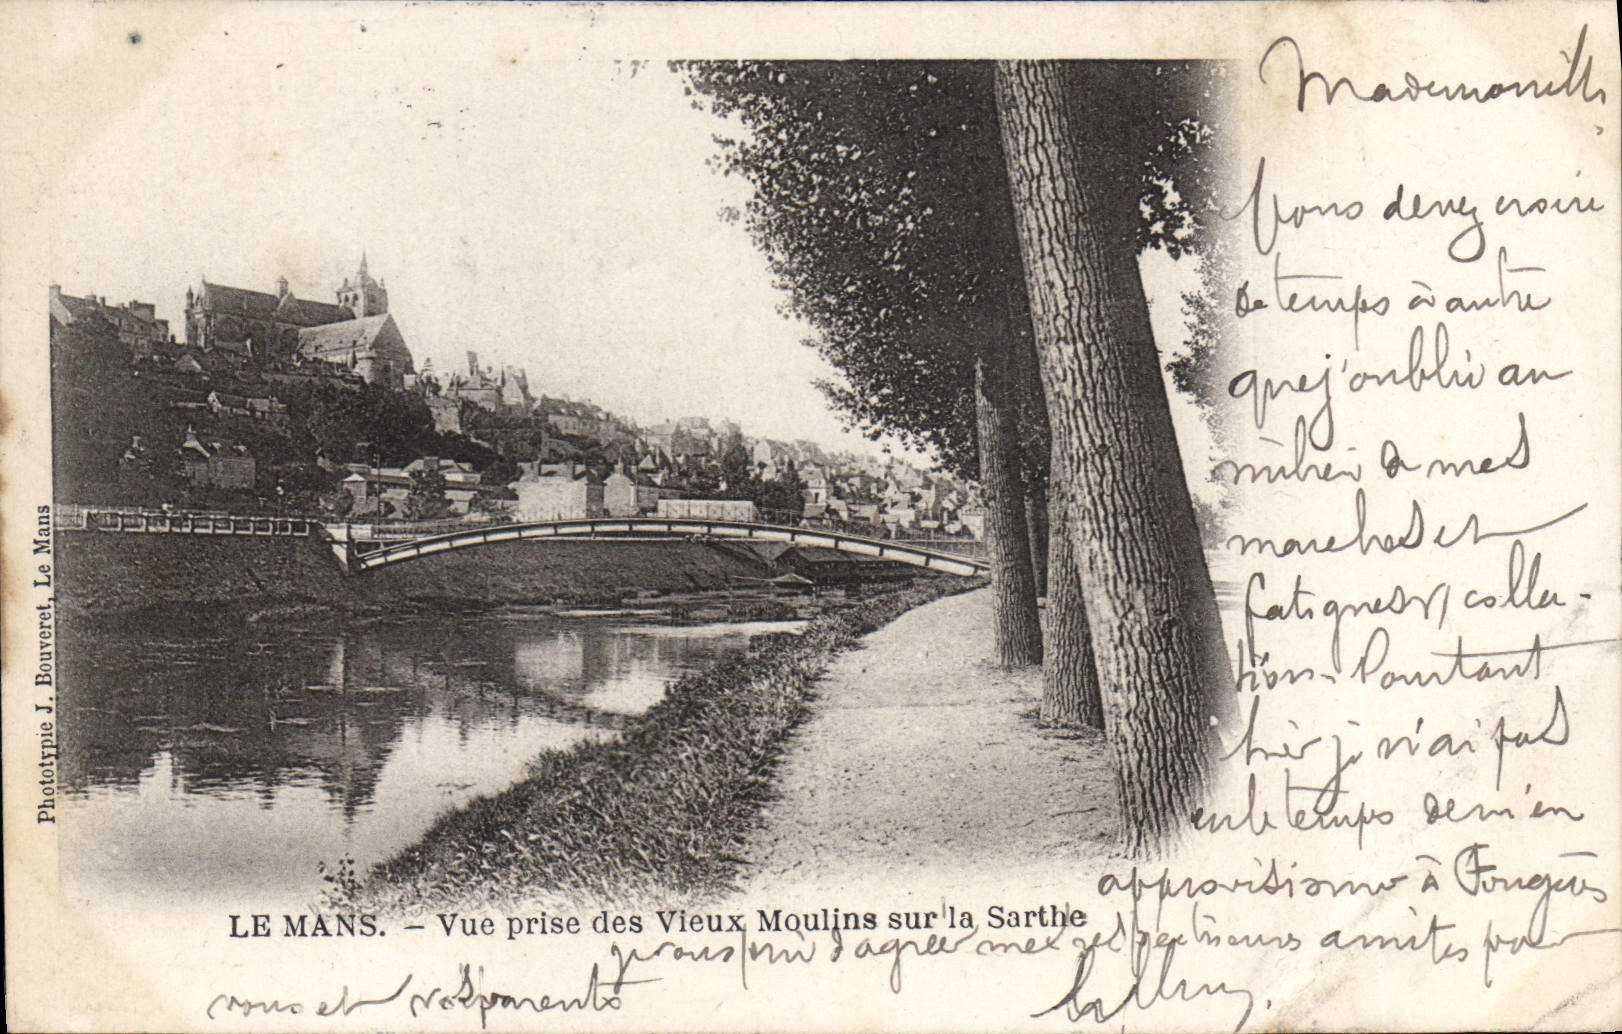 Mademoiselle
Vous devez croire
de temps à autre
que j'oublie au
milieu de mes
marches et
fatigues v/ collec-
tion. Pourtant
hier je n'ai pas
eu le temps de m'en
approvisionner à Fougères
je vous prie d'agréer mes respectueuses amitiés pour
vous et vos parents
LE MANS. – Vue prise des Vieux Moulins sur la Sarthe
Phototypie J. Bouveret, Le Mans